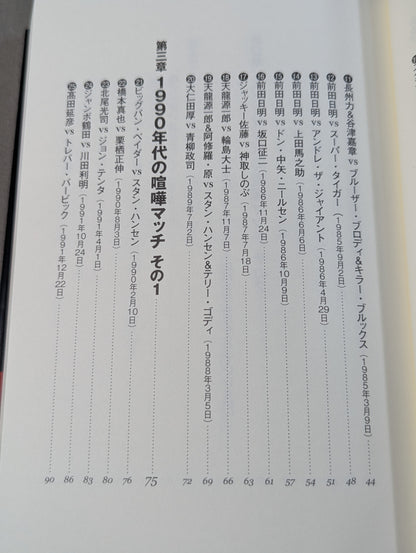 ⓫長州力&谷津嘉章 vs ブルーザー・ブロディ&キラー・ブルックス(1985年3月9日) 44
⓬前田日明 vs スーパー・タイガー(1985年9月2日) 48
⓭前田日明 vs アンドレ・ザ・ジャイアント(1986年4月29日) 51
⓮前田日明 vs 上田馬之助(1986年6月6日) 54
⓯前田日明 vs ドン・中矢・ニールセン(1986年10月9日) 57
⓰前田日明 vs 坂口征二(1986年11月24日) 61
⓱ジャッキー佐藤 vs 神取しのぶ(1987年7月18日) 63
⓲天龍源一郎 vs 輪島大士(1987年11月7日) 66
⓳天龍源一郎&阿修羅・原 vs スタン・ハンセン&テリー・ゴディ(1988年3月5日) 69
⓴大仁田厚 vs 青柳政司(1989年7月2日) 72
第三章 1990年代の喧嘩マッチ その1 75
㉑ビッグバン・ベイダー vs スタン・ハンセン(1990年2月10日) 76
㉒橋本真也 vs 栗栖正伸(1990年8月3日) 80
㉓北尾光司 vs ジョン・テンタ(1991年4月1日) 83
㉔ジャンボ鶴田 vs 川田利明(1991年10月24日) 86
㉕髙田延彦 vs トレバー・バービック(1991年12月22日) 90